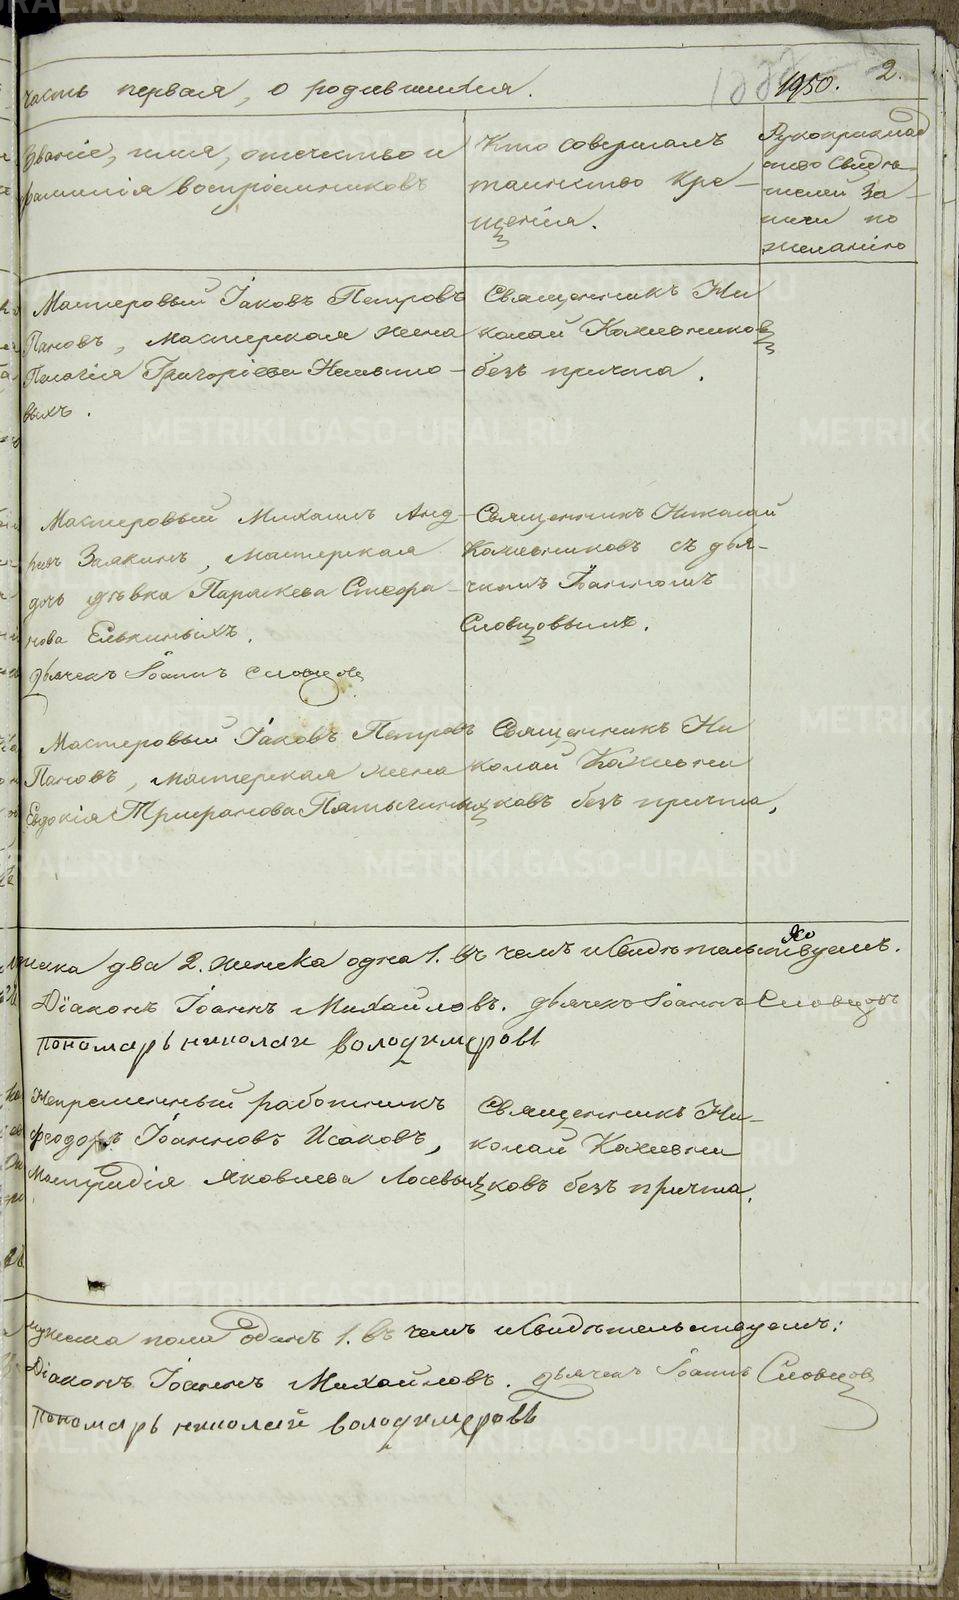 часть первая, о родившихся.
1950.
2.
Званіе, имя, отечество и
фамилія воспріемниковъ
Кто совершалъ
таинство кре-
щенія.
Рукоприклад
ство свидѣ-
телей за-
писи по
желанію
Мастеровый Іаковъ Петровъ
Пановъ, мастерская жена
Пелагія Григоріева
выхъ.
Священникъ Ни
колай Кожевников
безъ причта.
Мастеровый Михаилъ Анд-
реевъ Заякинъ, мастерская
дочь дѣвка Параскева Стефа-
нова Елькиныхъ.
Дьячекъ Іоаннъ Словцов
Священникъ Николай
Кожевниковъ съ дья-
чкомъ Іоанномъ
Словцовымъ.
Мастеровый Іаковъ Петровъ
Пановъ, мастерская жена
Евдокія Трифонова Пятыгиныхъ
Священникъ Ни
колай Кожевни
ковъ безъ причта,
мужеска два 2. женска одна 1. Въ чемъ и свидѣтельствуемъ.
Діаконъ Іоаннъ Михайловъ. дьячекъ Іоаннъ Словцовъ
пономарь николаи володимеровъ
Непременный работникъ
Феодоръ Іоанновъ Исаковъ,
Яковлева Лосевыхъ
Священникъ Ни-
колай Кожевни
ковъ безъ причта.
мужеска пола одинъ 1. Въ чемъ и свидѣтельствуемъ:
Діаконъ Іоаннъ Михайловъ. дьячекъ Іоаннъ Словцов
пономарь николай володимеровъ
METRIKI.GASO-URAL.RU